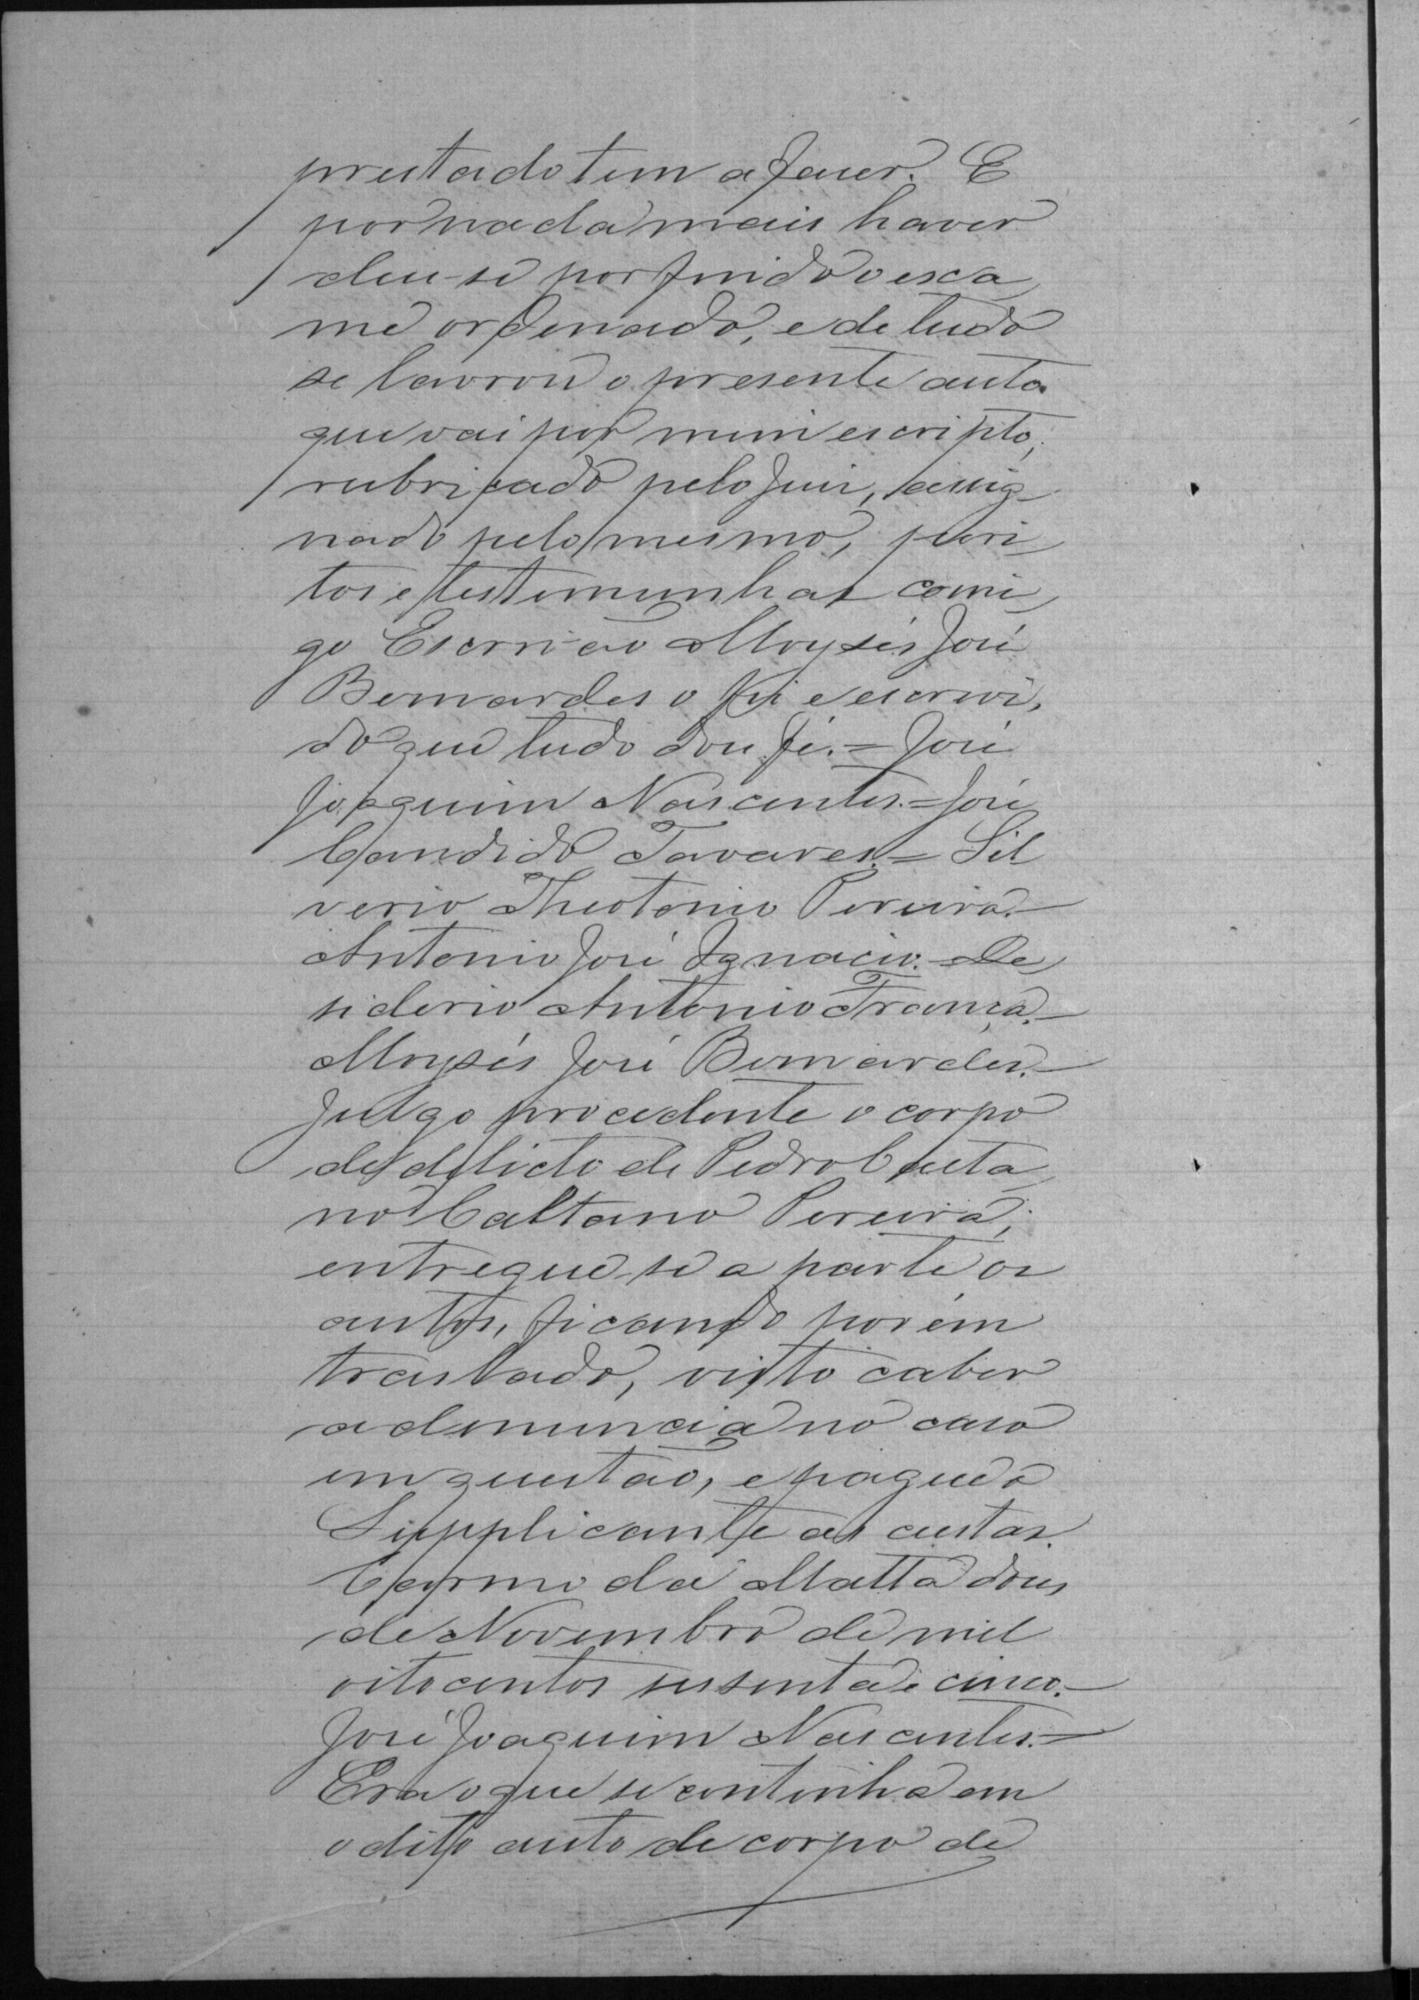 prestado tem a fazer. E
por nada mais haver
deu-se por findo o exa
me ordenado, e de tudo
se lavrou o presente auto
que vai por mim escripto,
rubricado pelo Juiz, assig-
nado pelo mesmo, peri
tos e testemunhas comi
go Escrivão Moysés José
Bernardes o fiz e escrevi,
do que tudo dou fé. = José
Joaquim Nascentes. = José
Candido Tavares. = Sil
verio Theotonio Pereira. -
Antonio José Ignacio. - De
siderio Antonio França. -
Moysés José Bernardes. -
Julgo procedente o corpo
de delicto de Pedro Caeta
no Caetano Pereira;
entregue-se a parte os
autos, ficando porém
traslado, visto caber
a denuncia no caso
em questão, e pague o
Supplicante as custas.
Carmo da Matta dous
de Novembro de mil
oitocentos sessenta e cinco. -
José Joaquim Nascentes. =
Era o que se continha em
o dito auto de corpo de